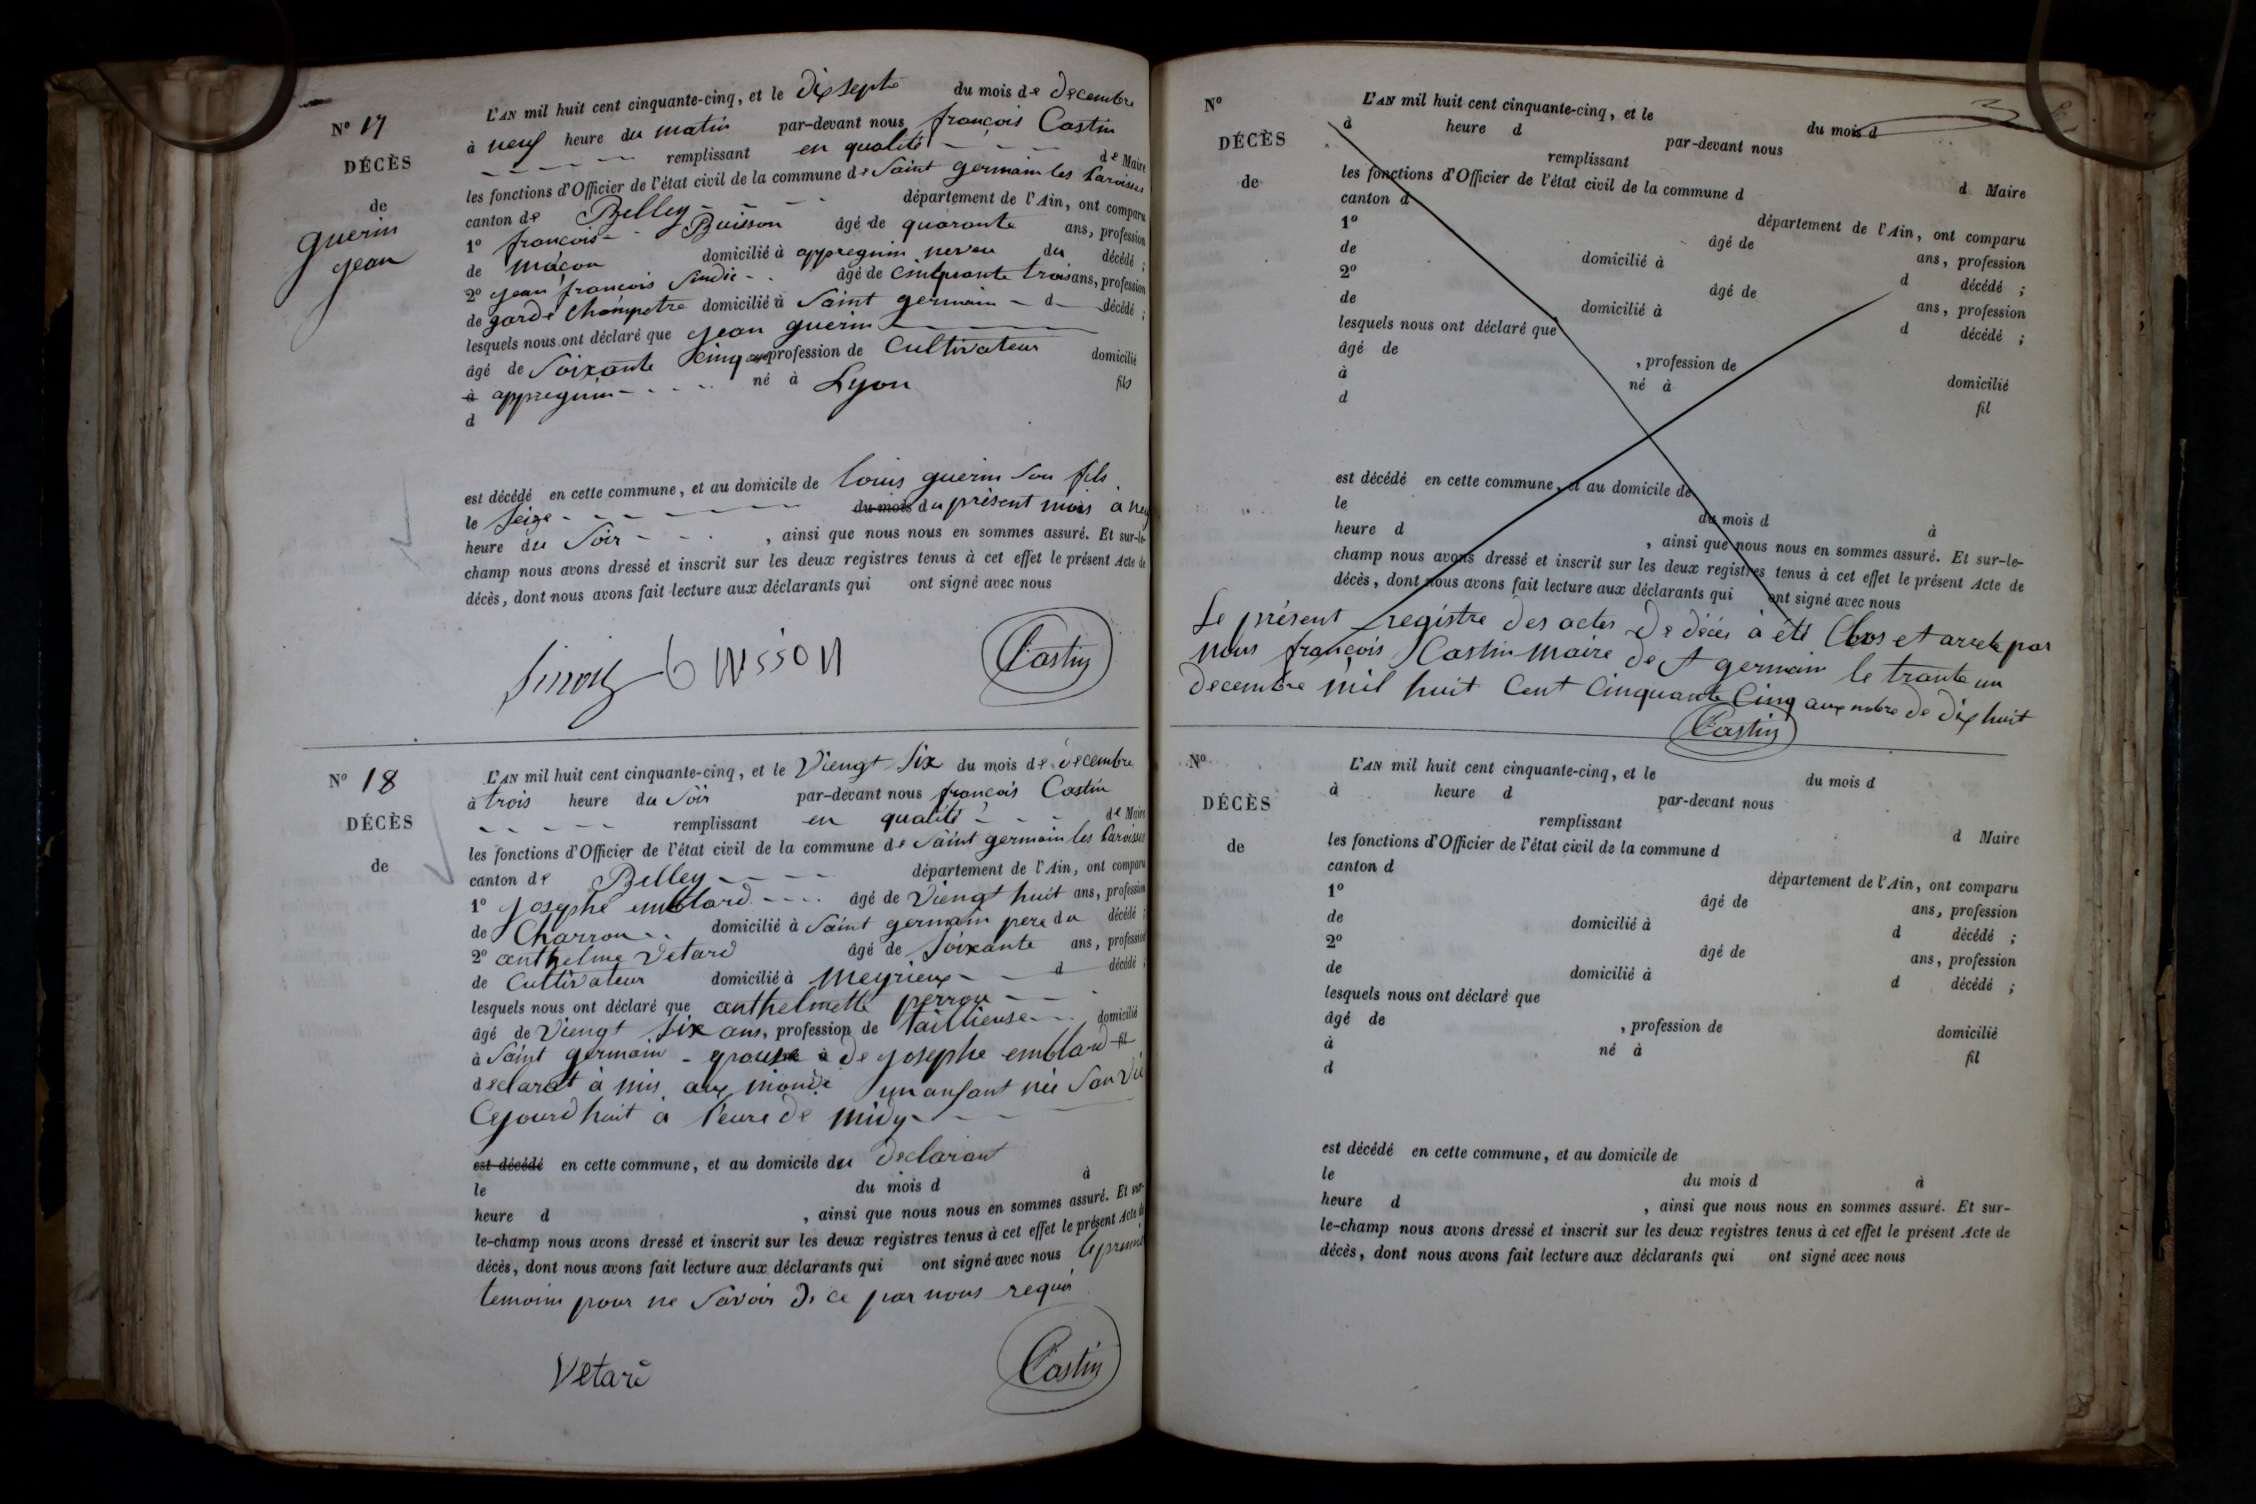 N° 17
DÉCÈS
de
guerin
jean
L'AN mil huit cent cinquante-cinq, et le dixsepte du mois de decembre
à neuf heure du matin par-devant nous françois Castin
remplissant en qualité de Maire
les fonctions d'Officier de l'état civil de la commune de Saint germain les Paroisses
canton de Belley département de l'Ain, ont comparu
1° françois Buisson âgé de quarante ans, profession
de maçon domicilié à appregnin neveu du décédé ;
2° jean françois Sindic âgé de cinquante trois ans, profession
de garde Champetre domicilié à Saint germain d décédé ;
lesquels nous ont déclaré que jean guerin
âgé de Soixante cinq ans profession de Cultivateur domicilié
à appregnin né à Lyon fils
d
est décédé en cette commune, et au domicile de louis guerin son fils
le Seize du mois du présent mois à neuf
heure du Soir , ainsi que nous nous en sommes assuré. Et sur-le-
champ nous avons dressé et inscrit sur les deux registres tenus à cet effet le présent Acte de
décès, dont nous avons fait lecture aux déclarants qui ont signé avec nous
Buisson Castin
N° 18
DÉCÈS
de
L'AN mil huit cent cinquante-cinq, et le Viengt Six du mois de decembre
à trois heure du Soir par-devant nous françois Castin
remplissant en qualité de Maire
les fonctions d'Officier de l'état civil de la commune de Saint germain les Paroisses
canton de Belley département de l'Ain, ont comparu
1° Josephe emblard âgé de Viengt huit ans, profession
de Charron domicilié à Saint germain pere du décédé ;
2° anthelme Vetard âgé de Soixante ans, profession
de Cultivateur domicilié à Meyrieux d décédé ;
lesquels nous ont déclaré que anthelmette perron
âgé de Viengt Six ans, profession de Taillieuse domicilié
à Saint germain de Josephe emblard fil
declarat à mis aux monde un anfant née San Vie
Cejourdhuit a l'eure de midy
est décédé en cette commune, et au domicile du declarant
le du mois d à
heure d , ainsi que nous nous en sommes assuré. Et sur-
le-champ nous avons dressé et inscrit sur les deux registres tenus à cet effet le présent Acte de
décès, dont nous avons fait lecture aux déclarants qui ont signé avec nous le premie
temoins pour ne Savoir de ce par nous requis
Vetard Castin
N°
DÉCÈS
de
L'AN mil huit cent cinquante-cinq, et le du mois d
à heure d par-devant nous
remplissant d Maire
les fonctions d'Officier de l'état civil de la commune d
canton d département de l'Ain, ont comparu
1° âgé de ans, profession
de domicilié à d décédé ;
2° âgé de ans, profession
de domicilié à d décédé ;
lesquels nous ont déclaré que
âgé de , profession de domicilié
à né à fil
d
est décédé en cette commune, et au domicile de
le du mois d à
heure d , ainsi que nous nous en sommes assuré. Et sur-le-
champ nous avons dressé et inscrit sur les deux registres tenus à cet effet le présent Acte de
décès, dont nous avons fait lecture aux déclarants qui ont signé avec nous
Le présent registre des actes de décés à été Clos et arrete par
nous françois Castin maire de St germain le trante un
decembre mil huit Cent Cinquante Cinq aux nobre de dix huit
Castin
N°
DÉCÈS
de
L'AN mil huit cent cinquante-cinq, et le du mois d
à heure d par-devant nous
remplissant d Maire
les fonctions d'Officier de l'état civil de la commune d
canton d département de l'Ain, ont comparu
1° âgé de ans, profession
de domicilié à d décédé ;
2° âgé de ans, profession
de domicilié à d décédé ;
lesquels nous ont déclaré que
âgé de , profession de domicilié
à né à fil
d
est décédé en cette commune, et au domicile de
le du mois d à
heure d , ainsi que nous nous en sommes assuré. Et sur-
le-champ nous avons dressé et inscrit sur les deux registres tenus à cet effet le présent Acte de
décès, dont nous avons fait lecture aux déclarants qui ont signé avec nous